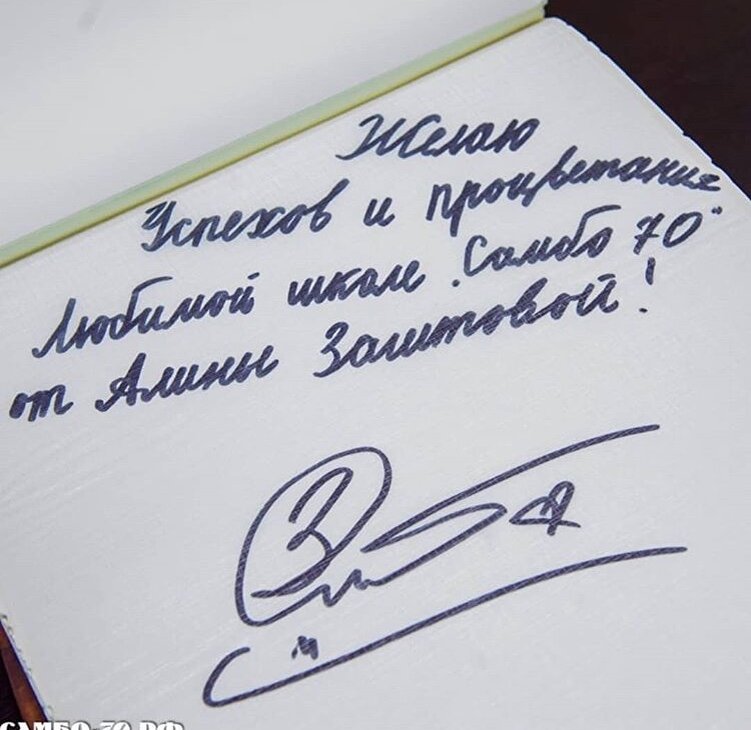 Желаю
Успехов и процветания
Любимой школе "Самбо 70"
от Алины Загитовой!
САМБО-70.РФ